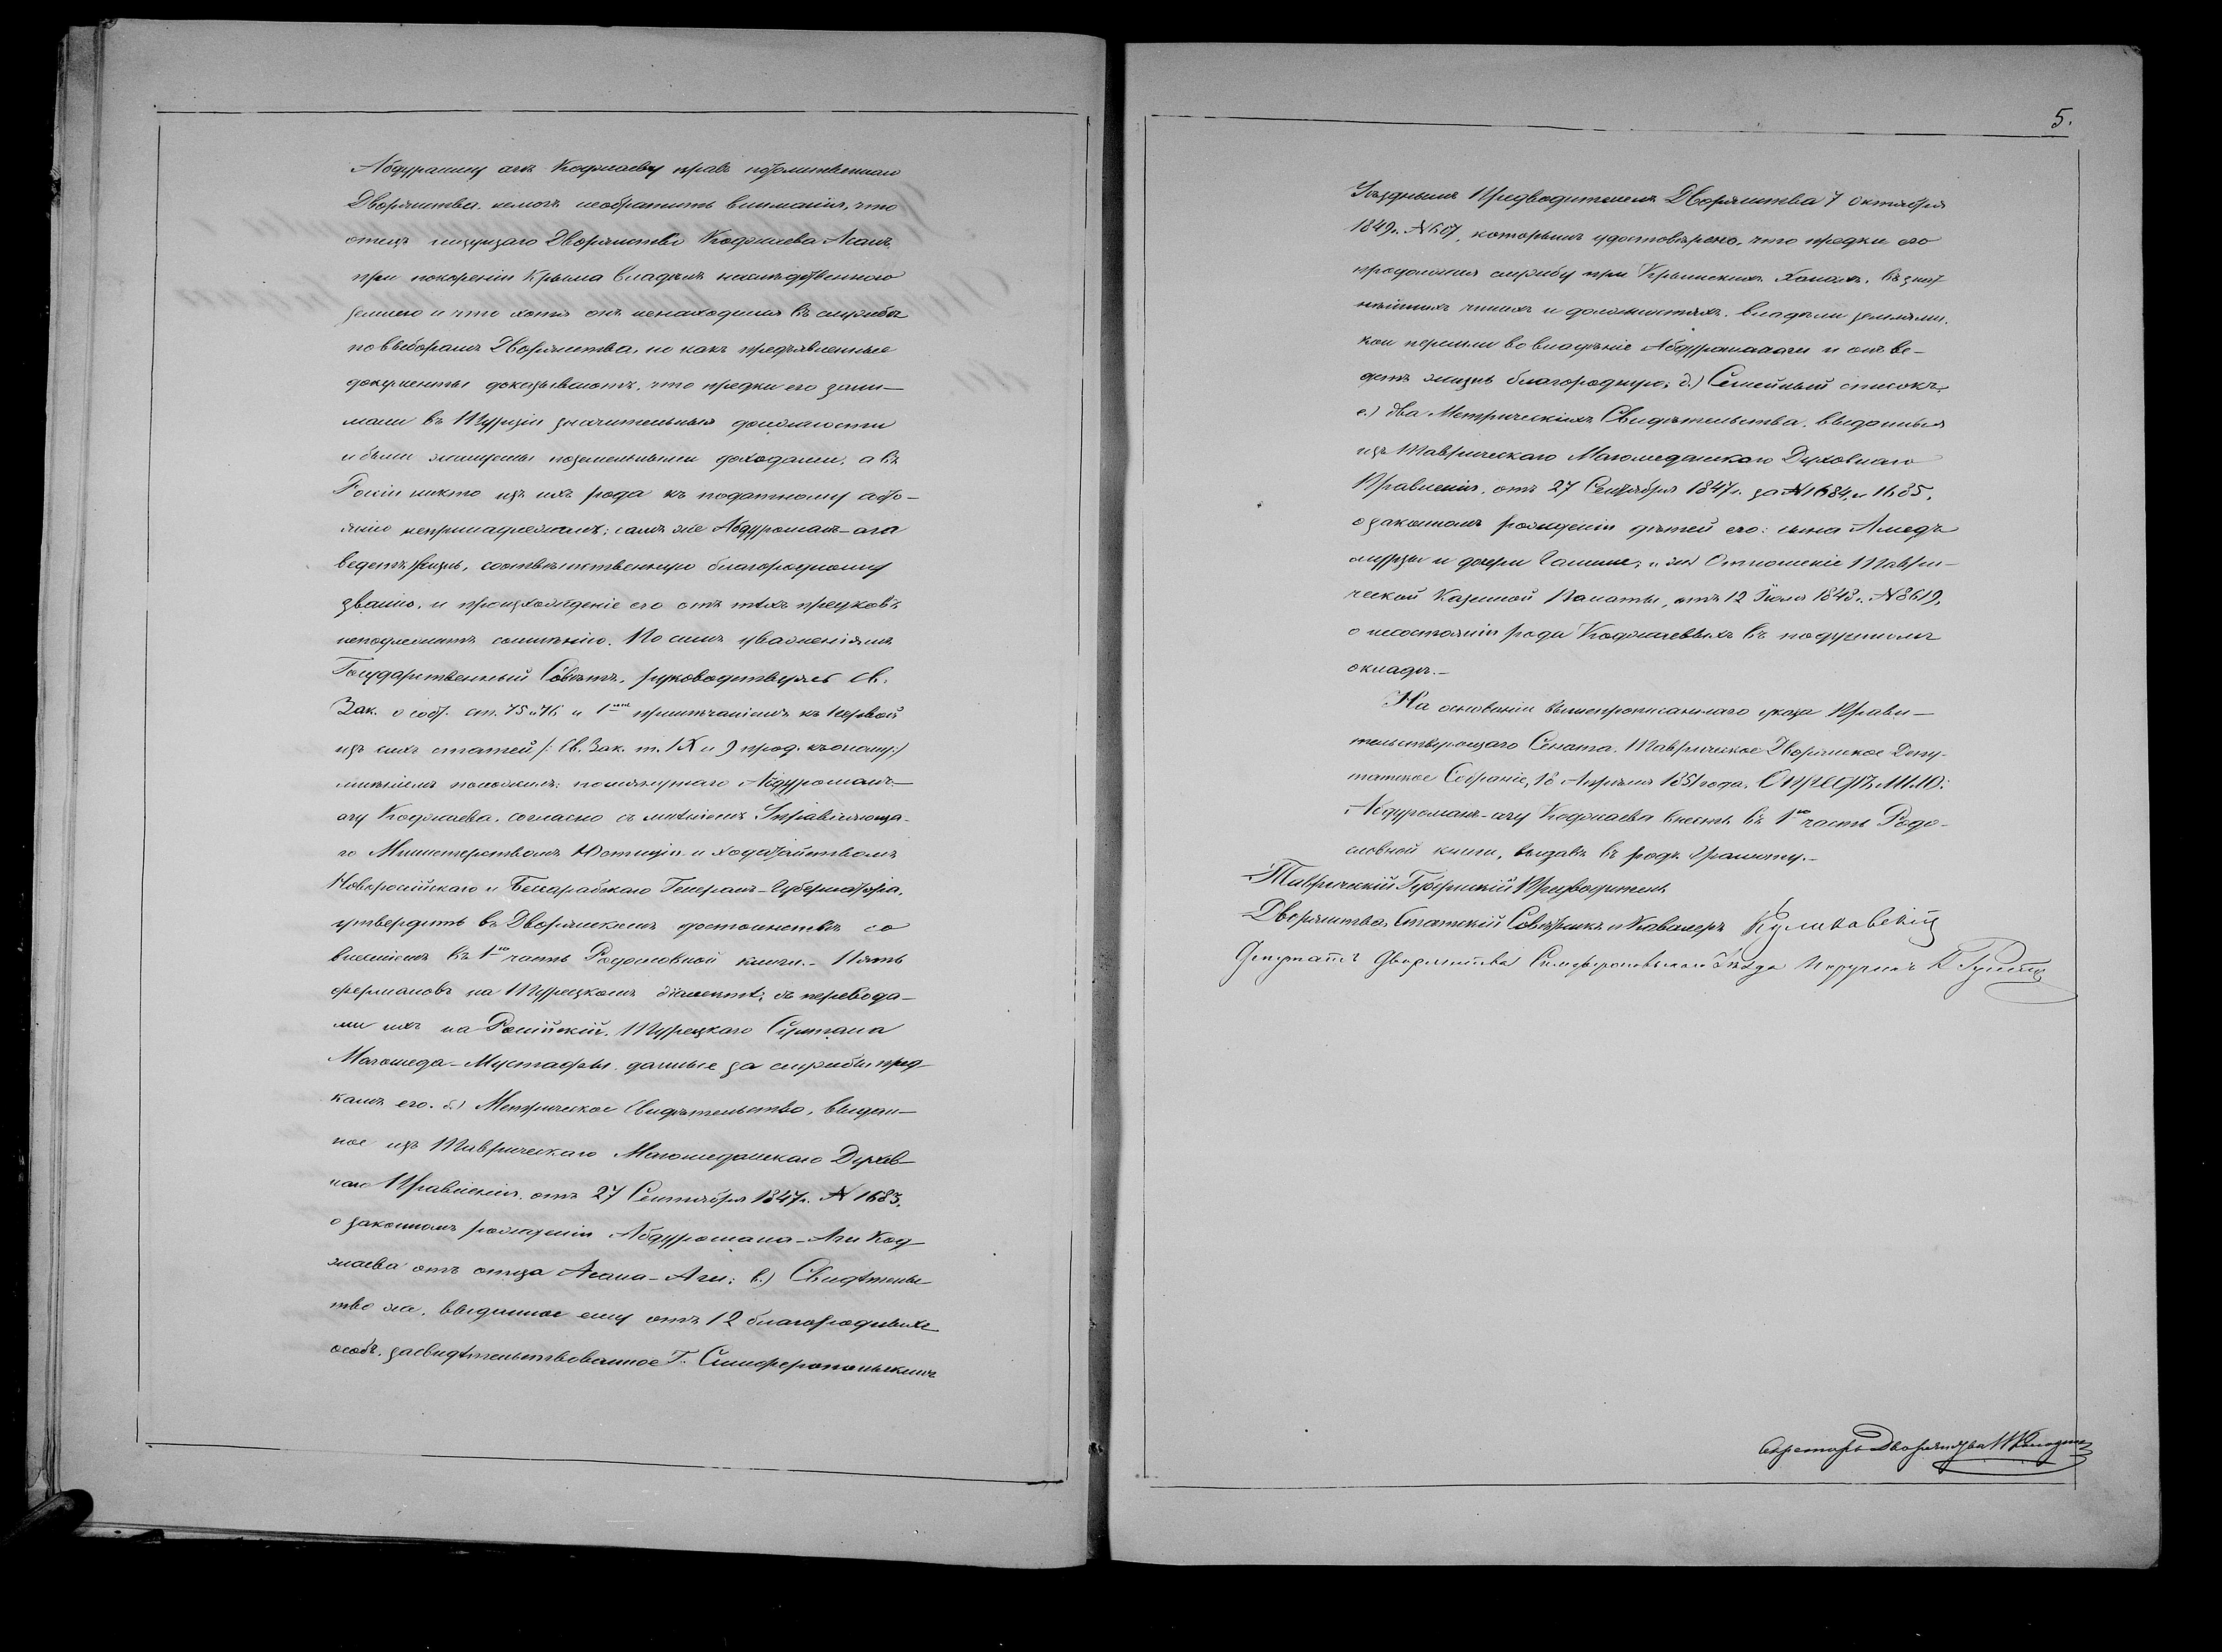 Абдураману агѣ Коджаеву правъ потомственнаго
Дворянства, немогъ необратить вниманія, что
отецъ ищущаго Дворянства Коджаева Асанъ,
при покореніи Крыма владѣлъ наслѣдственною
землею и что хотя онъ ненаходился въ службѣ
по выборамъ Дворянства, но какъ предъявленные
документы доказываютъ, что предки его зани-
мали въ Турціи значительныя должности
и были жалуемы поземельными доходами, а въ
Росіи никто изъ ихъ рода къ податному
непринадлежалъ; самъ же Абдуроманъ-ага
ведетъ жизнь, соотвѣтственную благородному
званію, и происхожденіе его отъ тѣхъ предковъ
неподлежитъ сомнѣнію. По симъ уваженіямъ
Государственный Совѣтъ, руководствуясь Св.
Зак. о сост. ст. 75 и 76 и 1мъ примѣчаніемъ къ первой
изъ сихъ статей /: Св. Зак. т. IX и 9 прод. къ оному:/
мнѣніемъ положилъ: помянутаго Абдуроманъ-
агу Коджаева, согласно съ мнѣніемъ Управляюща-
го Министерствомъ Юстиціи и ходатайствомъ
Новоросійскаго и Бессарабскаго Генералъ-Губернатора,
утвердить въ Дворянскомъ достоинствѣ со
внесеніемъ въ 1ю часть Родословной книги. - Пять
фермановъ на Турецкомъ діалектѣ, съ перевода-
ми ихъ на Російскій, Турецкаго Султана
Магомеда-Мустафы, данные за службы пред-
камъ его. б.) Метрическое Свидѣтельство, выдан-
ное изъ Таврическаго Магомеданскаго Духов-
наго Правленія, отъ 27 Сентября 1847 г. № 1683,
о законномъ рожденіи Абдуромана-Аги Код-
жаева отъ отца Асана-Аги; в.) Свидѣтельс-
тво же, выданное ему отъ 12 благородныхъ
особъ, засвидѣтельствованное Г. Симферопольскимъ
5.
Уѣзднымъ Предводителемъ Дворянства 7 Октября
1849 г. № 607, которымъ удостовѣрено, что предки его
продолжая службу при Крымскихъ Ханахъ, въ знат-
нѣйшихъ чинахъ и должностяхъ, владѣли землями,
кои перешли во владѣніе Абдуроманаги и онъ ве-
детъ жизнь благородную; д.) Семейный списокъ;
е.) два Метрическихъ Свидѣтельства, выданныя
изъ Таврическаго Магомеданскаго Духовнаго
Правленія, отъ 27 Сентября 1847 г. за № 1684 и 1685,
о законномъ рожденіи дѣтей его: сына Амедъ
мурзы и дочери и ж) Отношеніе Таври-
ческой Казенной Палаты, отъ 12 Іюля 1843 г. № 8619,
о несостояніи рода Коджаевыхъ въ подушномъ
окладѣ. -
На основаніи вышепрописаннаго указа Прави-
тельствующаго Сената, Таврическое Дворянское Депу-
татское Собраніе, 18 Апрѣля 1851 года, ОПРЕДѢЛИЛО:
Абдуроманъ-агу Коджаева внесть въ 1ю часть Родо-
словной книги, выдавъ въ родъ Грамоту. -
Таврическій Губернскій Предводитель
Дворянства, Статскій Совѣтникъ и Кавалеръ Куликовскій
Депутатъ Дворянства Симферопольскаго Уѣзда Поручикъ
Секретарь Дворянства